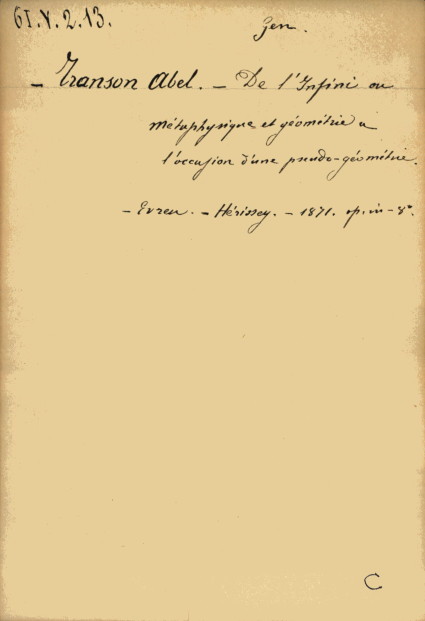 61.V.2.13.
Gen.
- Transon Abel. - De l'Infini ou
métaphysique et géométrie a
l'occasion d'une pseudo-géométrie.
- Evreu. - Hérissey. - 1871. op. in-8°.
C